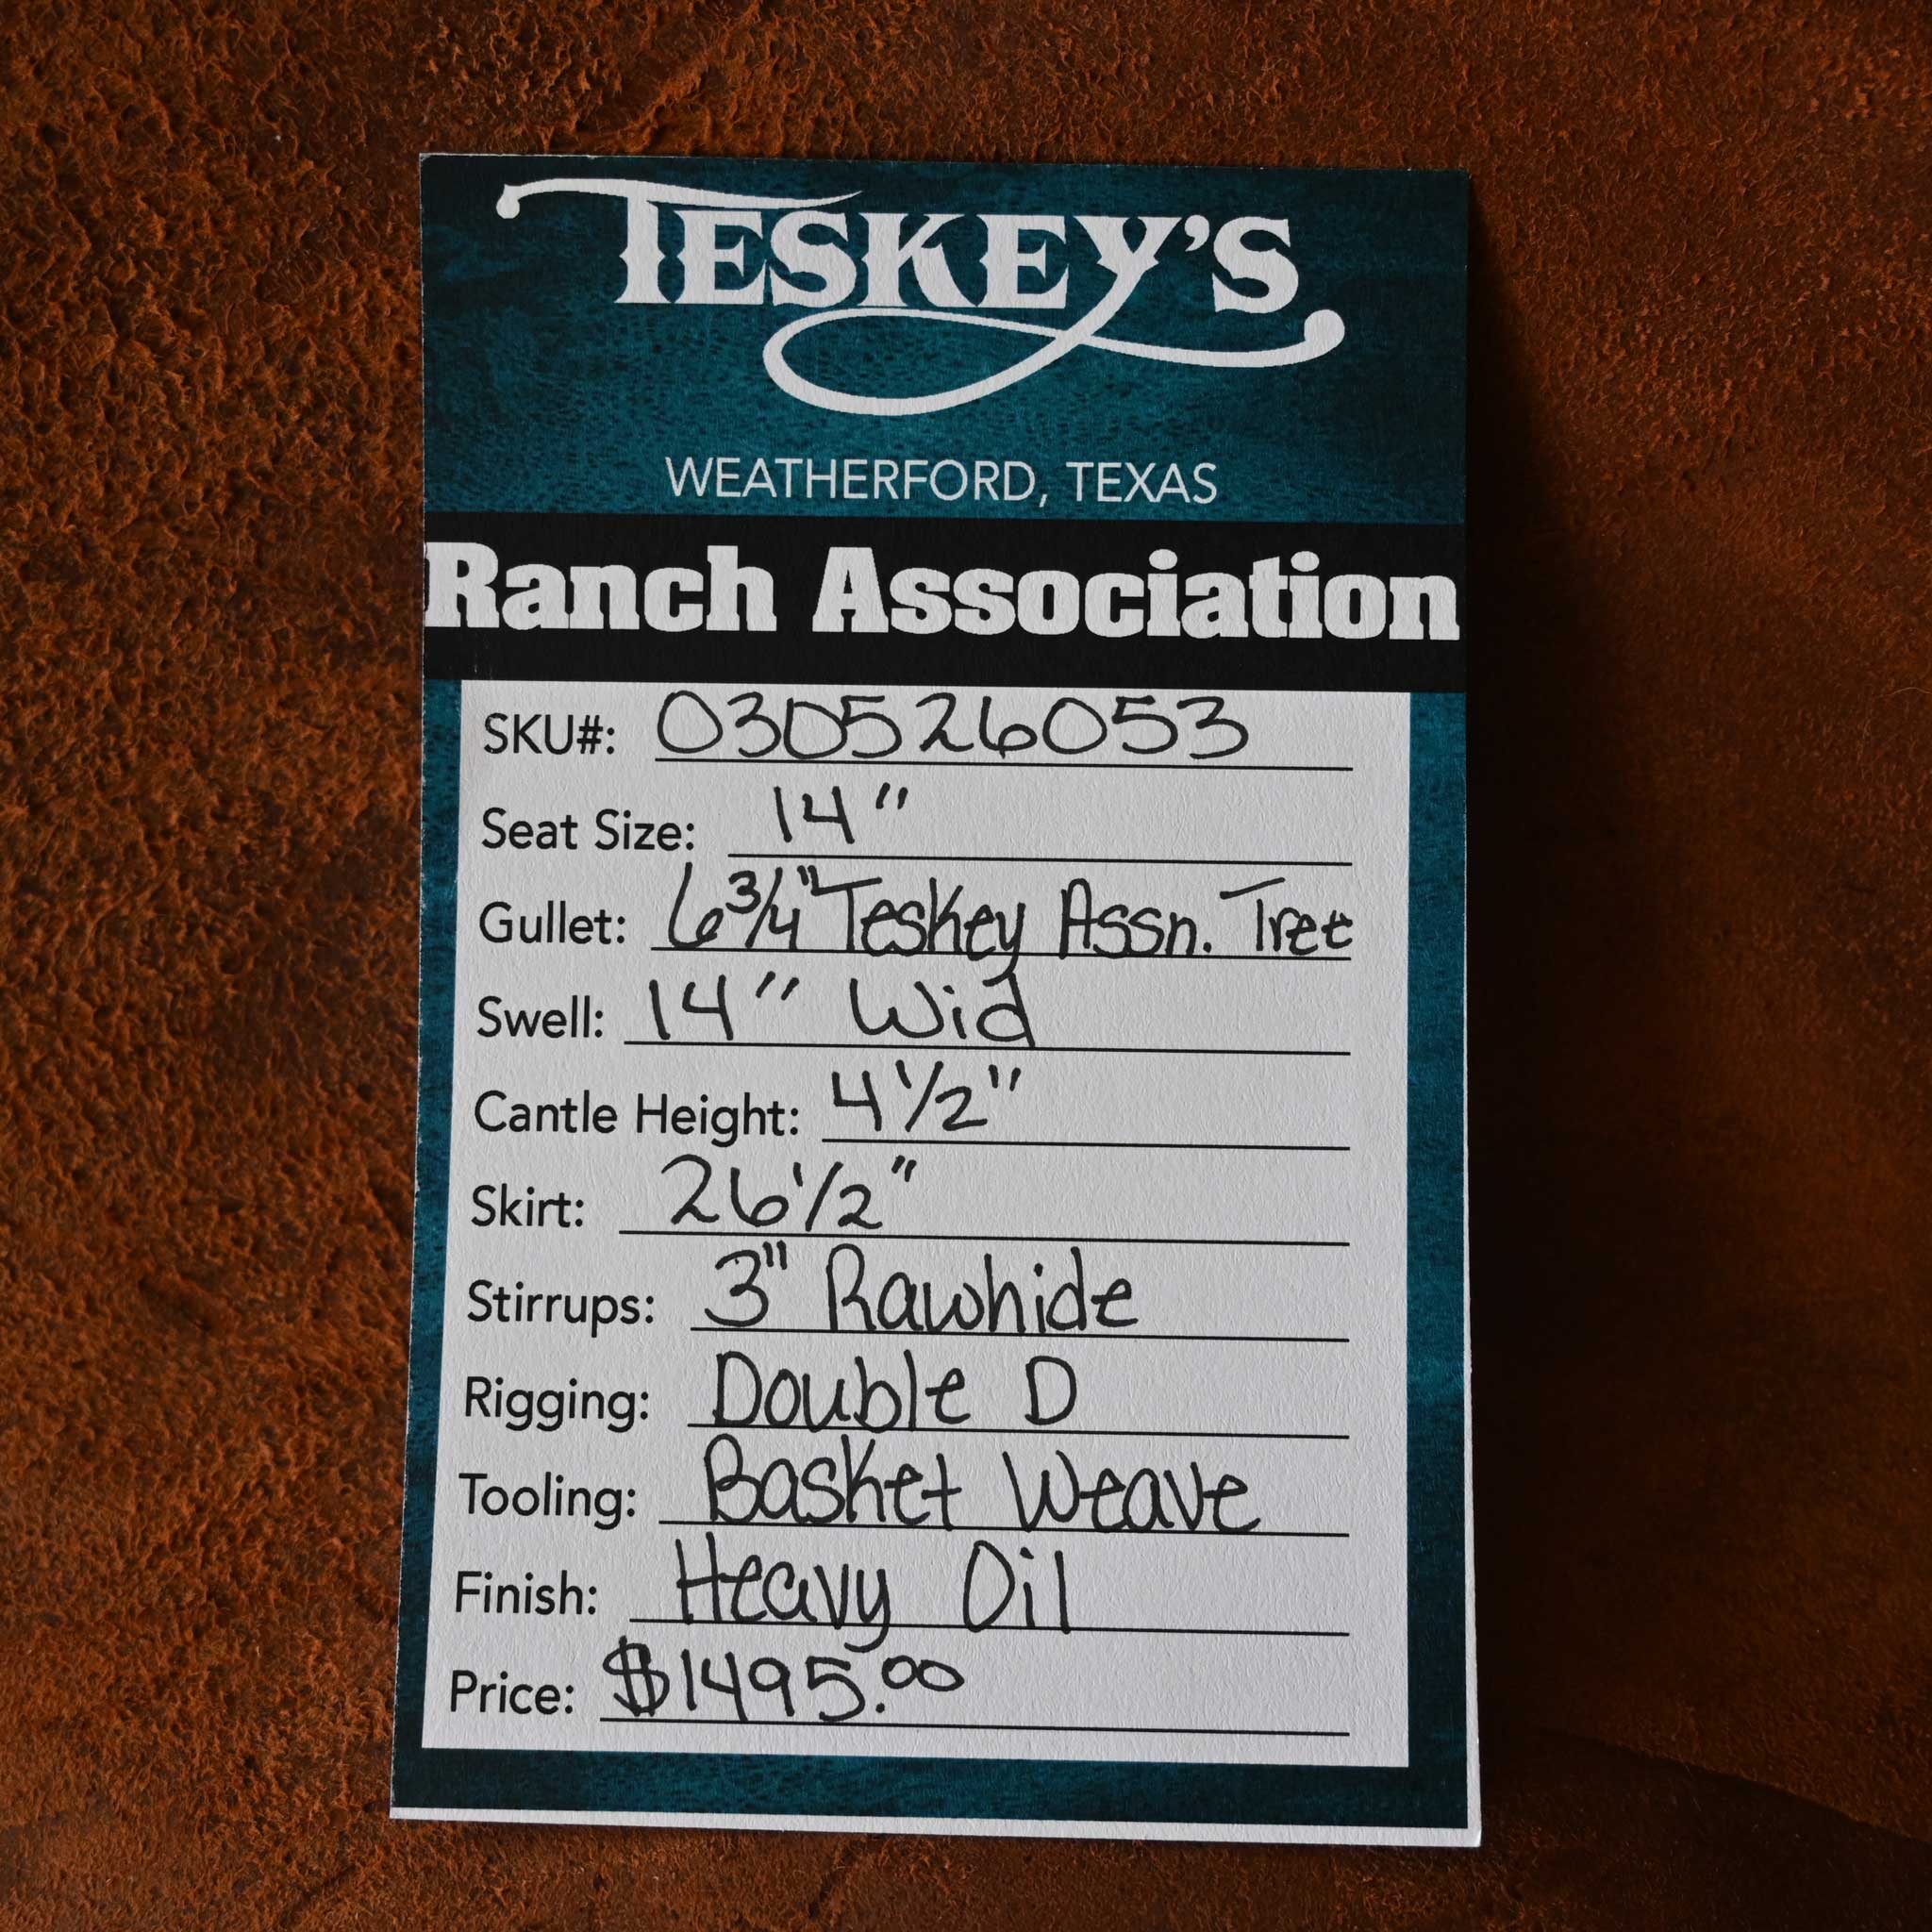 TESKEY'S
WEATHERFORD, TEXAS
Ranch Association
SKU#: 030526053
Seat Size: 14"
Gullet: 6 3/4" Teskey Assn. Tree
Swell: 14" Wid
Cantle Height: 4 1/2"
Skirt: 26 1/2"
Stirrups: 3" Rawhide
Rigging: Double D
Tooling: Basket Weave
Finish: Heavy Oil
Price: $1495.00